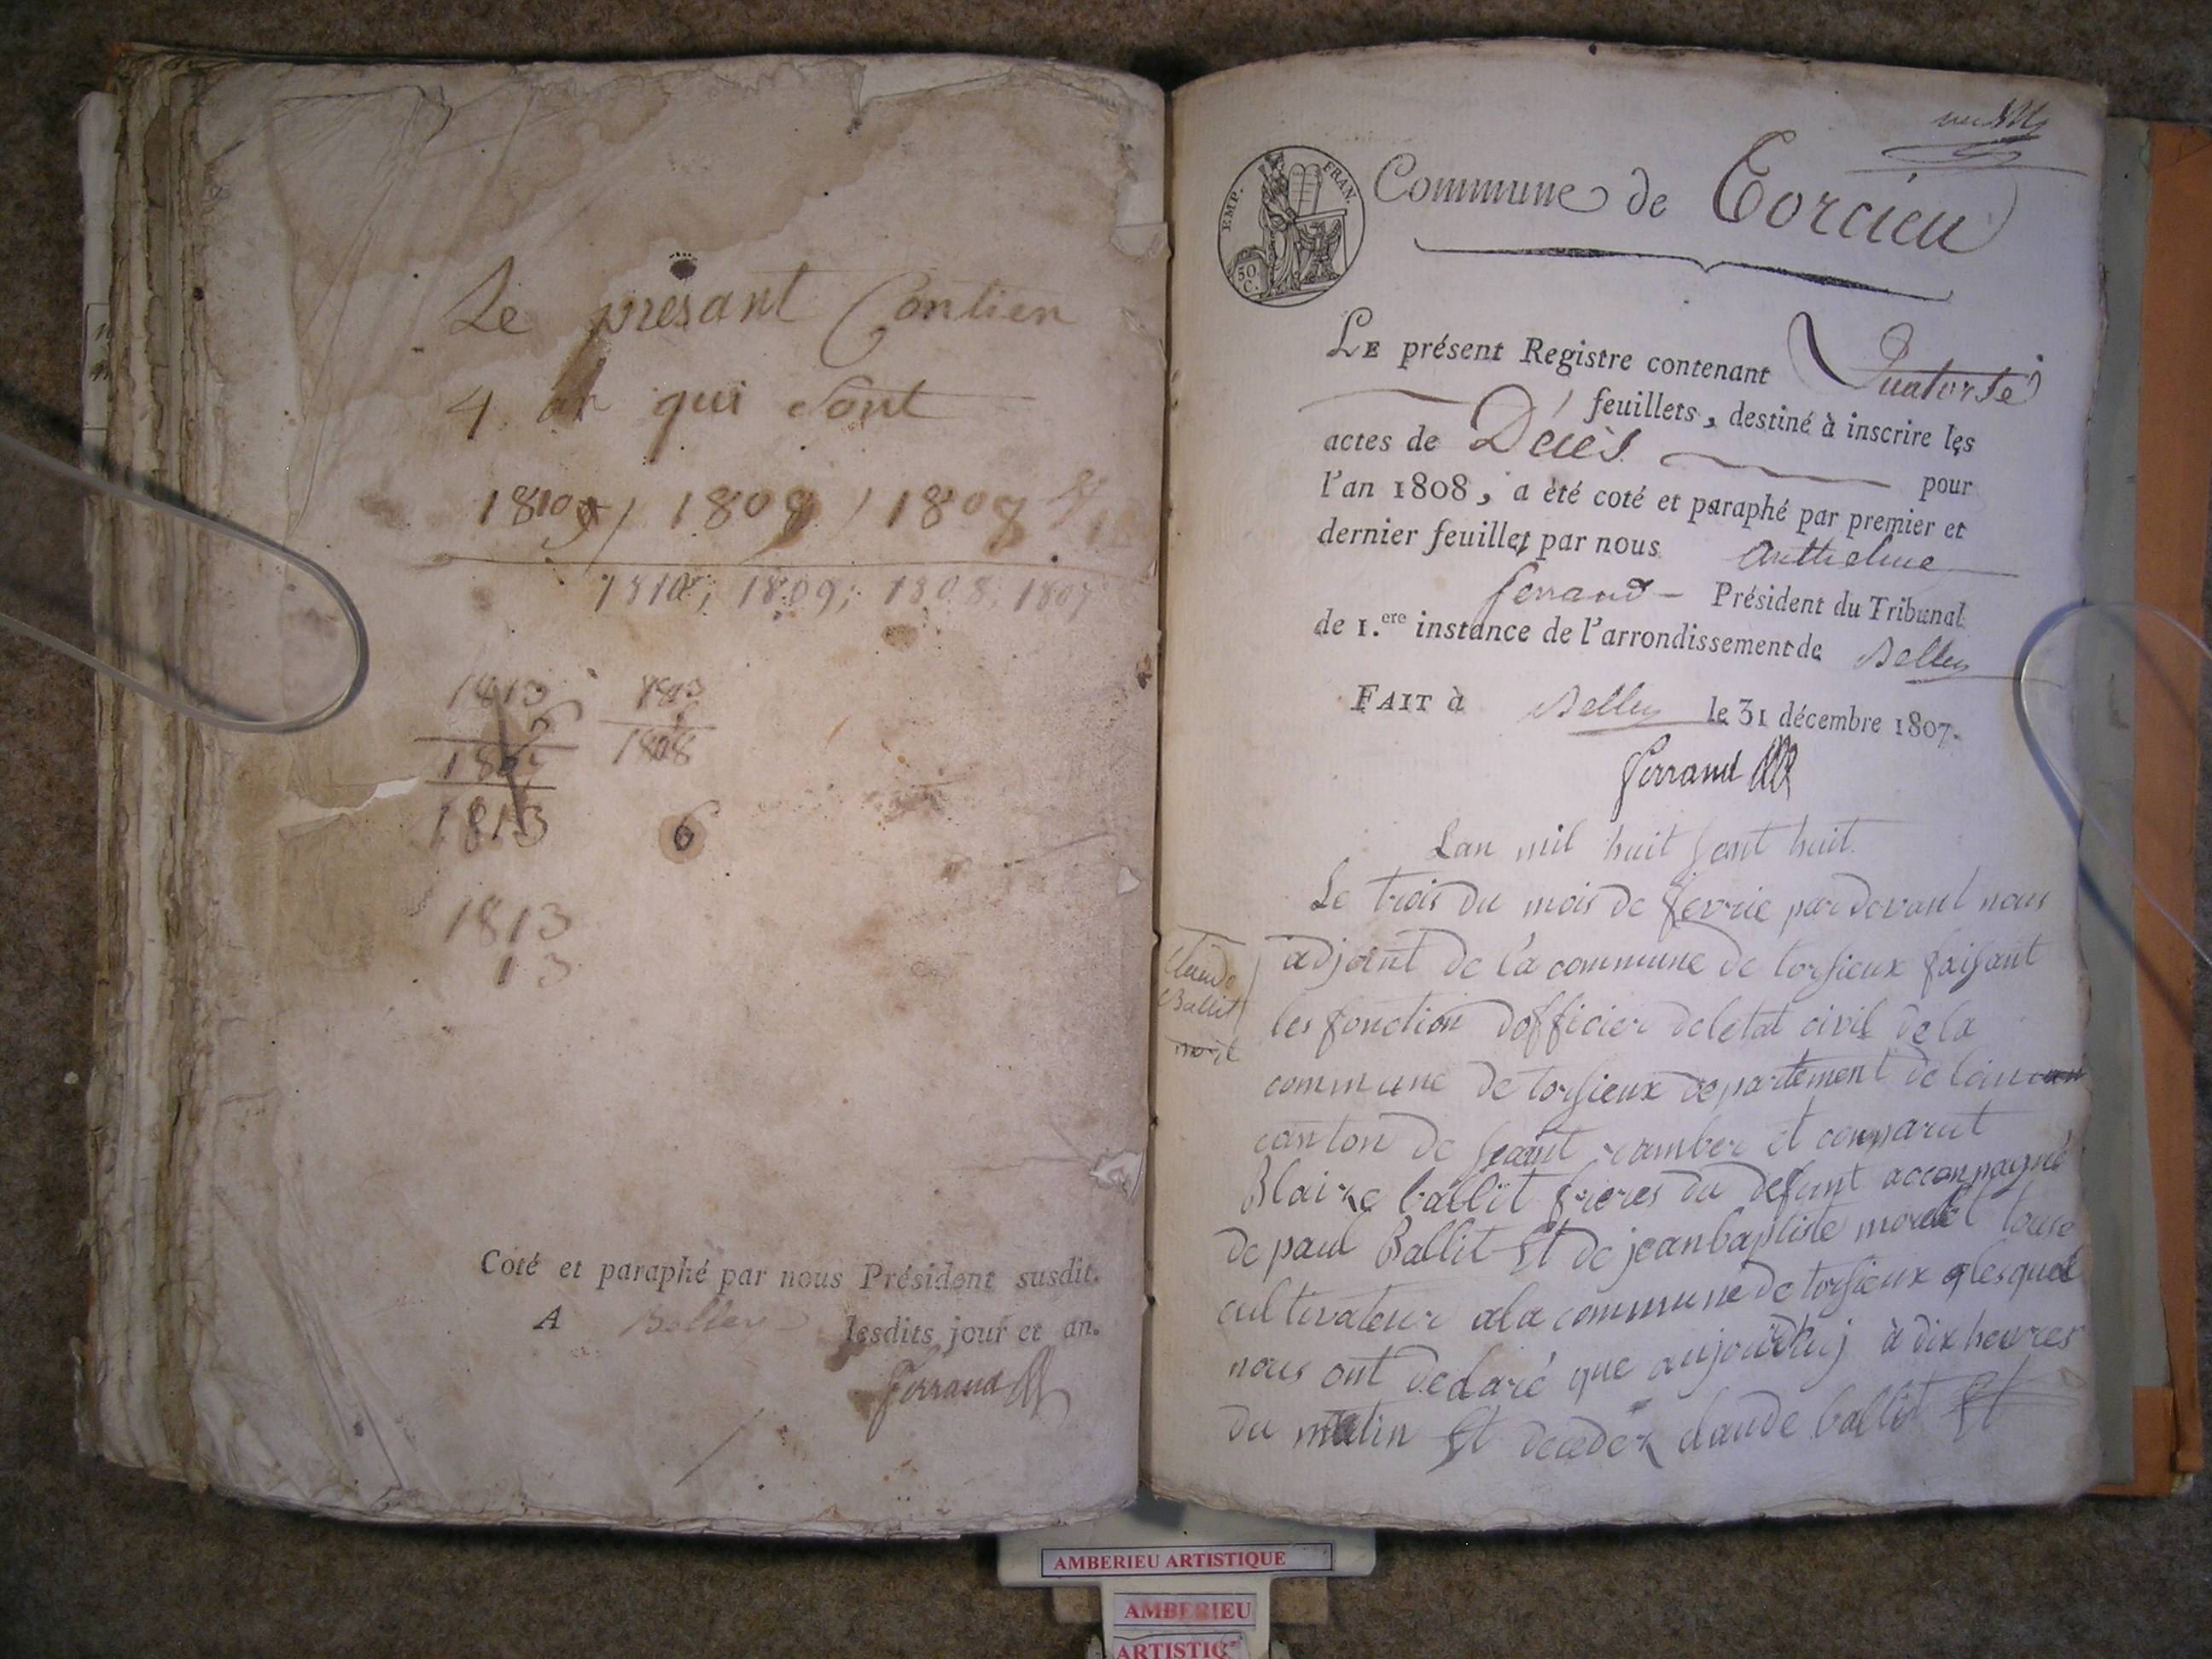 Le presant Contien
4 an qui sont
1810 / 1809 / 1808
1810; 1809; 1808; 1807
1813
1813
6
1808
1813
6
1813
13
Coté et paraphé par nous Président susdit.
A Belley lesdits jour et an.
Ferrand
EMP. FRAN.
50 C.
Commune de Torcieu
LE présent Registre contenant Quatorse
feuillets, destiné à inscrire les
actes de Décès pour
l'an 1808, a été coté et paraphé par premier et
dernier feuillet par nous Anthelme
ferrand - Président du Tribunal
de 1.ere instance de l'arrondissement de Belley
FAIT à Belley le 31 décembre 1807.
ferrand
Lan mil huit sent huit
Le trois du mois de fevrie pardevant nous
Claude
Ballit
adjoint de la commune de torsieux faisant
les fonction dofficier deletat civil de la
commune de torsieux departement de lain can
canton de seant ramber et comparut
Blaire ballit freres du defunt accompagné
de paul Ballit Et de jeanbaptiste morelet touse
cultivateur ala commune de torsieux lesquel
nous ont declaré que aujourdhuj à dix heures
du matin Et deceder claude ballit Et
AMBERIEU ARTISTIQUE
AMBERIEU
ARTISTIQ